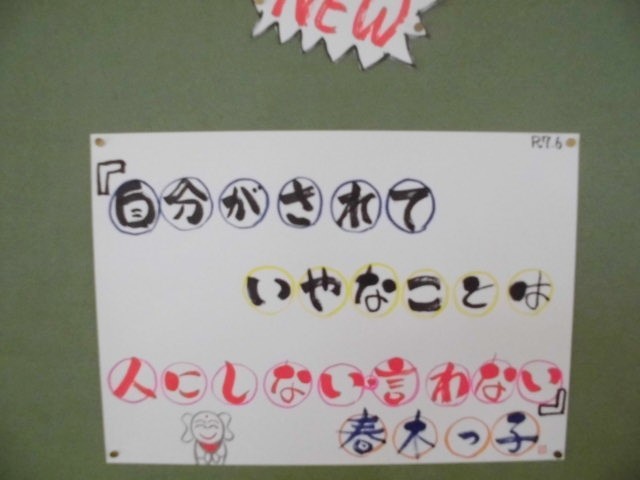 NEW
R7.6
『自分がされて
いやなことは
人にしない・言わない』
春木っ子